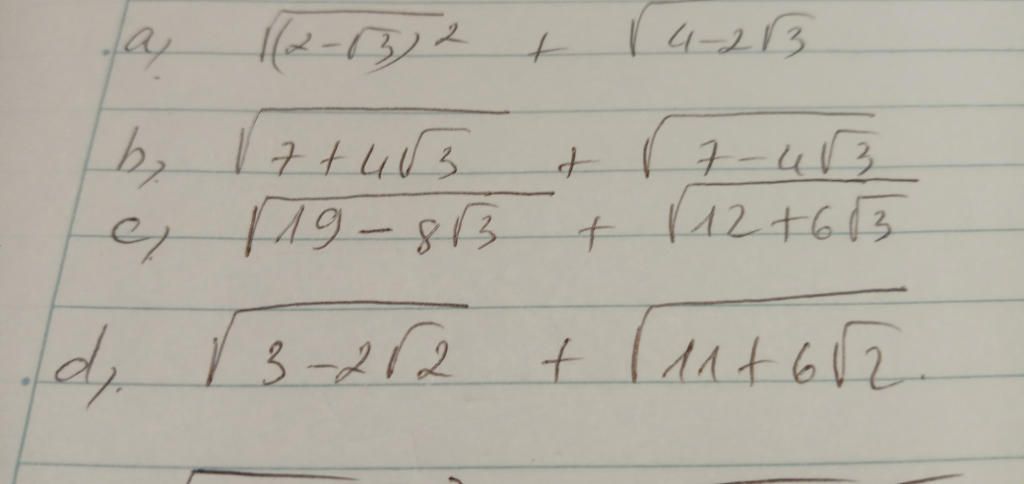 a, √(2-√3)² + √4-2√3
b, √7+4√3 + √7-4√3
c, √19-8√3 + √12+6√3
d, √3-2√2 + √11+6√2.